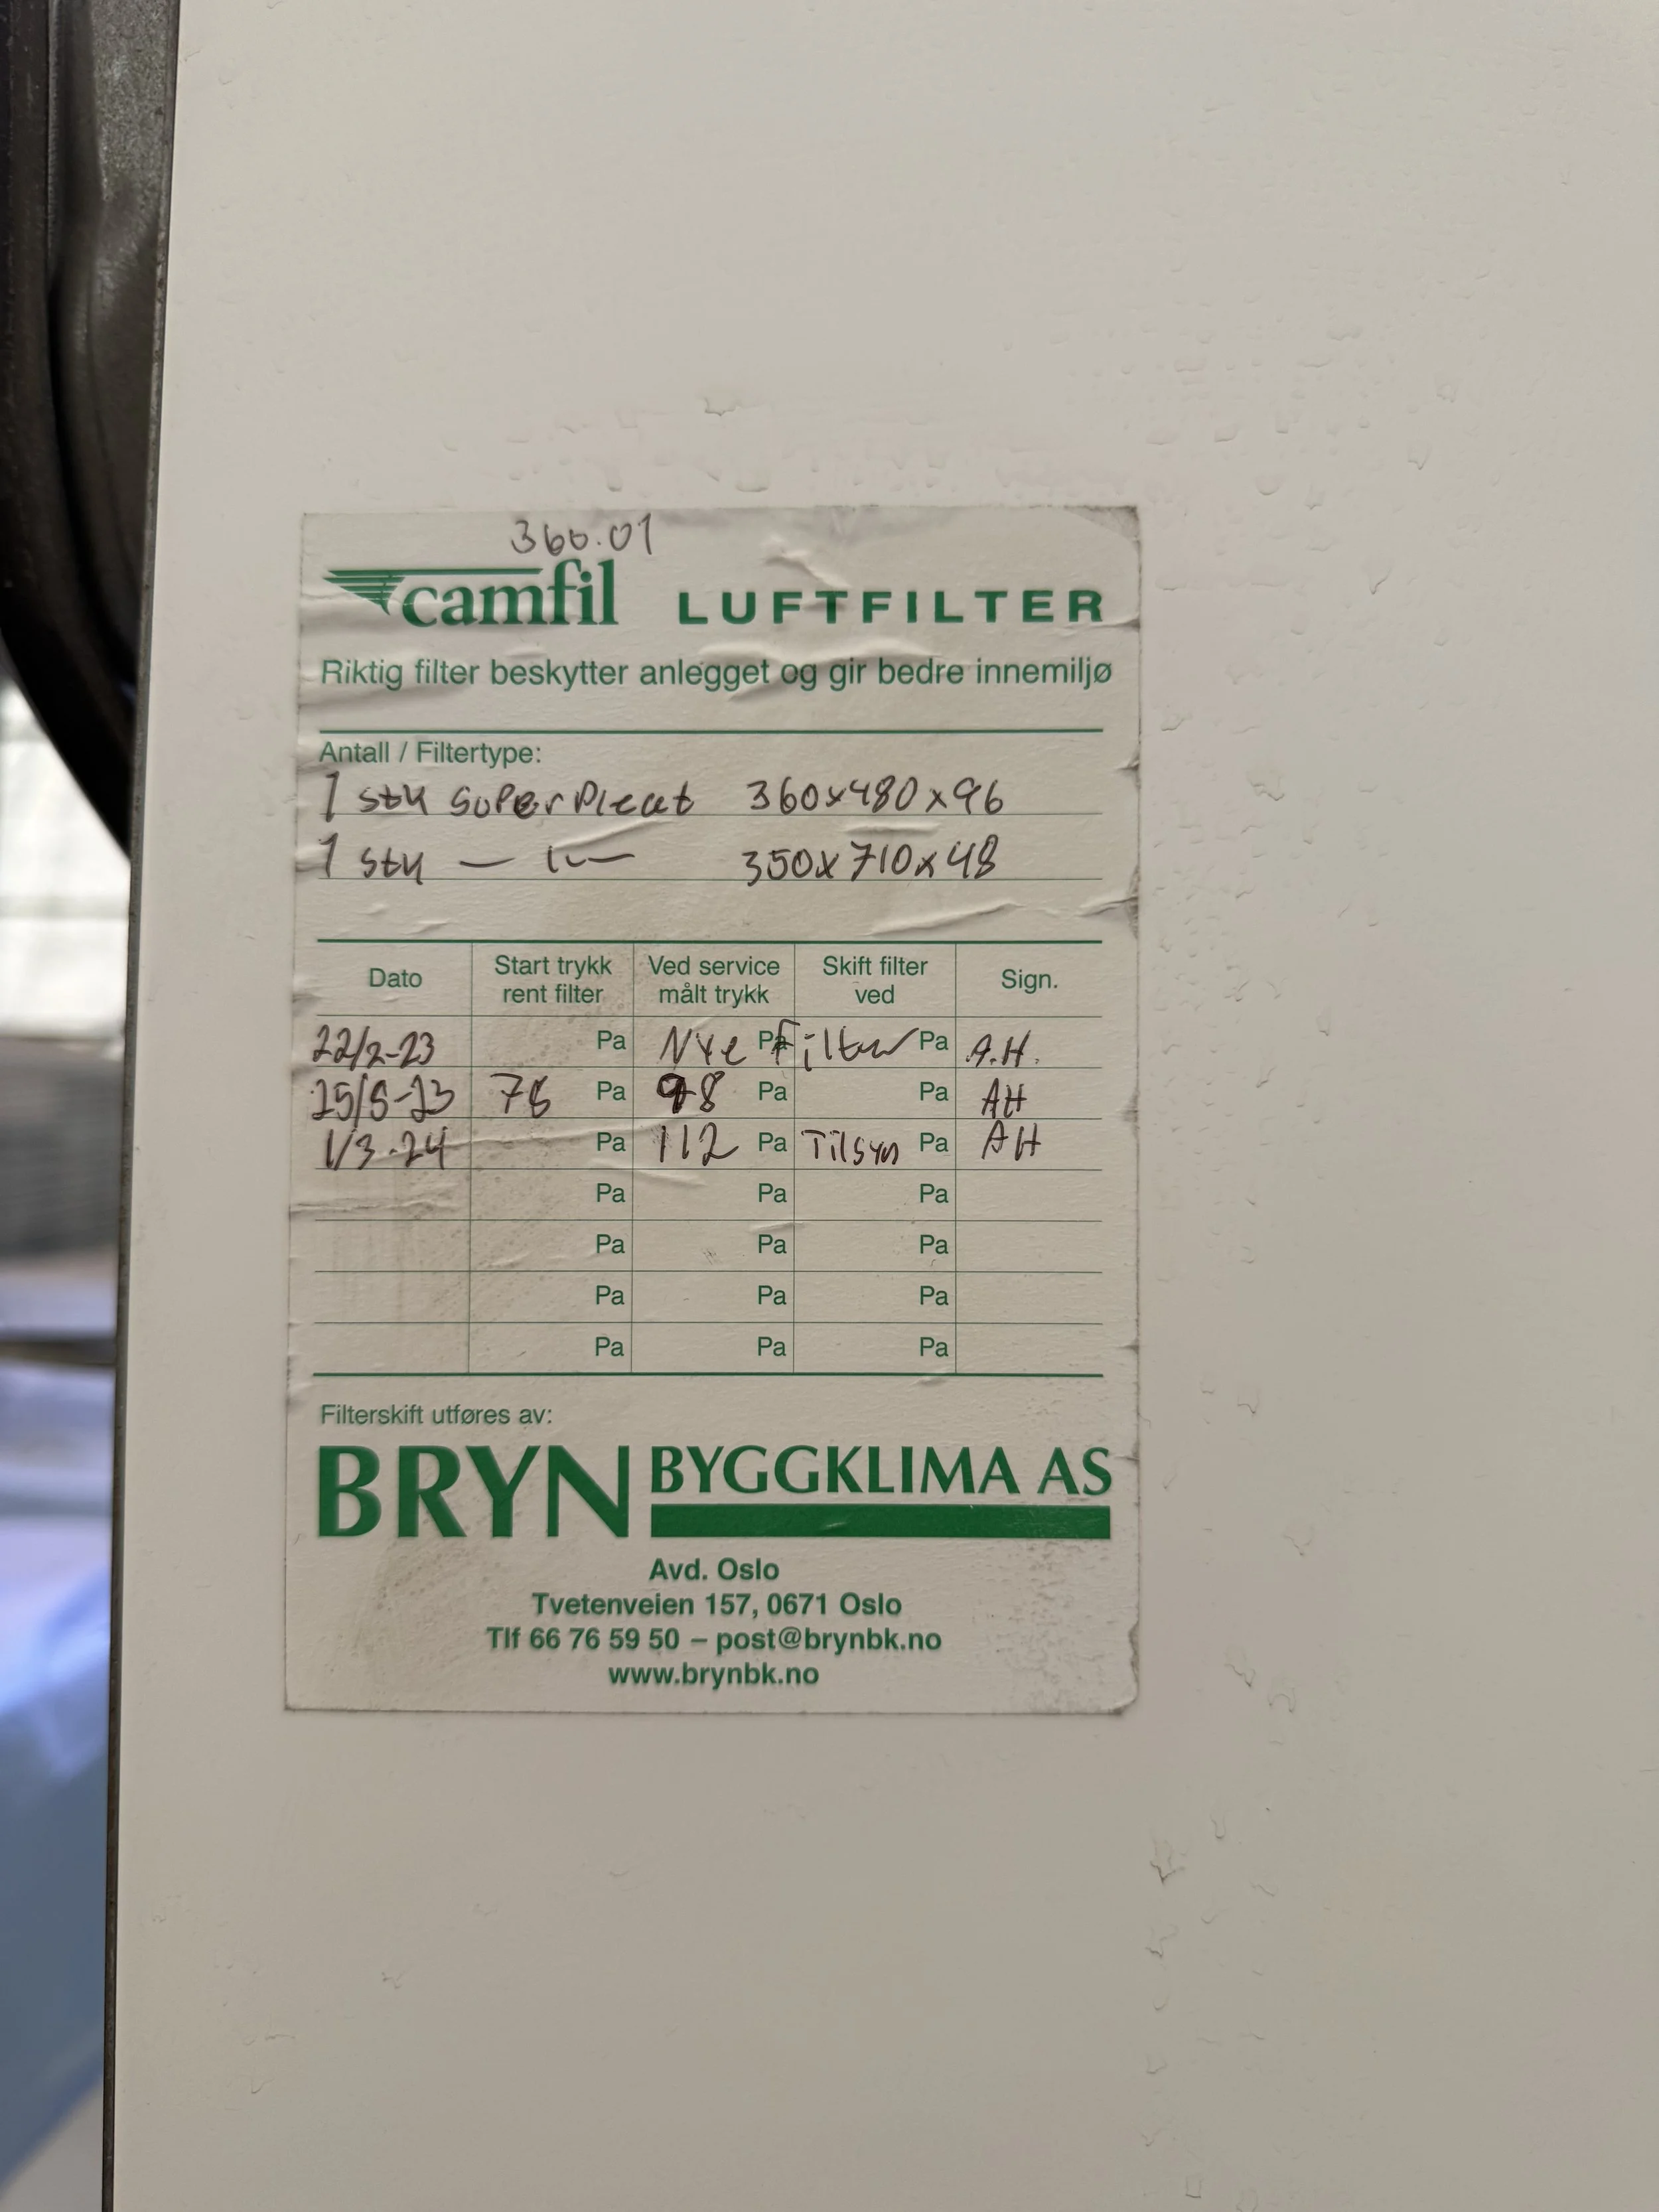 360.01
camfil LUFTFILTER
Riktig filter beskytter anlegget og gir bedre innemiljø
Antall / Filtertype:
1 stk SuperPleat 360x480x96
1 stk — 11 — 350x710x48
Dato Start trykk rent filter Ved service målt trykk Skift filter ved Sign.
22/2-23 Pa Nye Pa Filter Pa A.H.
Pa 98 Pa Pa AH
1/3-24 Pa 112 Pa Tilsyn Pa AH
Pa Pa Pa
Pa Pa Pa
Pa Pa Pa
Pa Pa Pa
Filterskift utføres av:
BRYN BYGGKLIMA AS
Avd. Oslo
Tvetenveien 157, 0671 Oslo
Tlf 66 76 59 50 – post@brynbk.no
www.brynbk.no